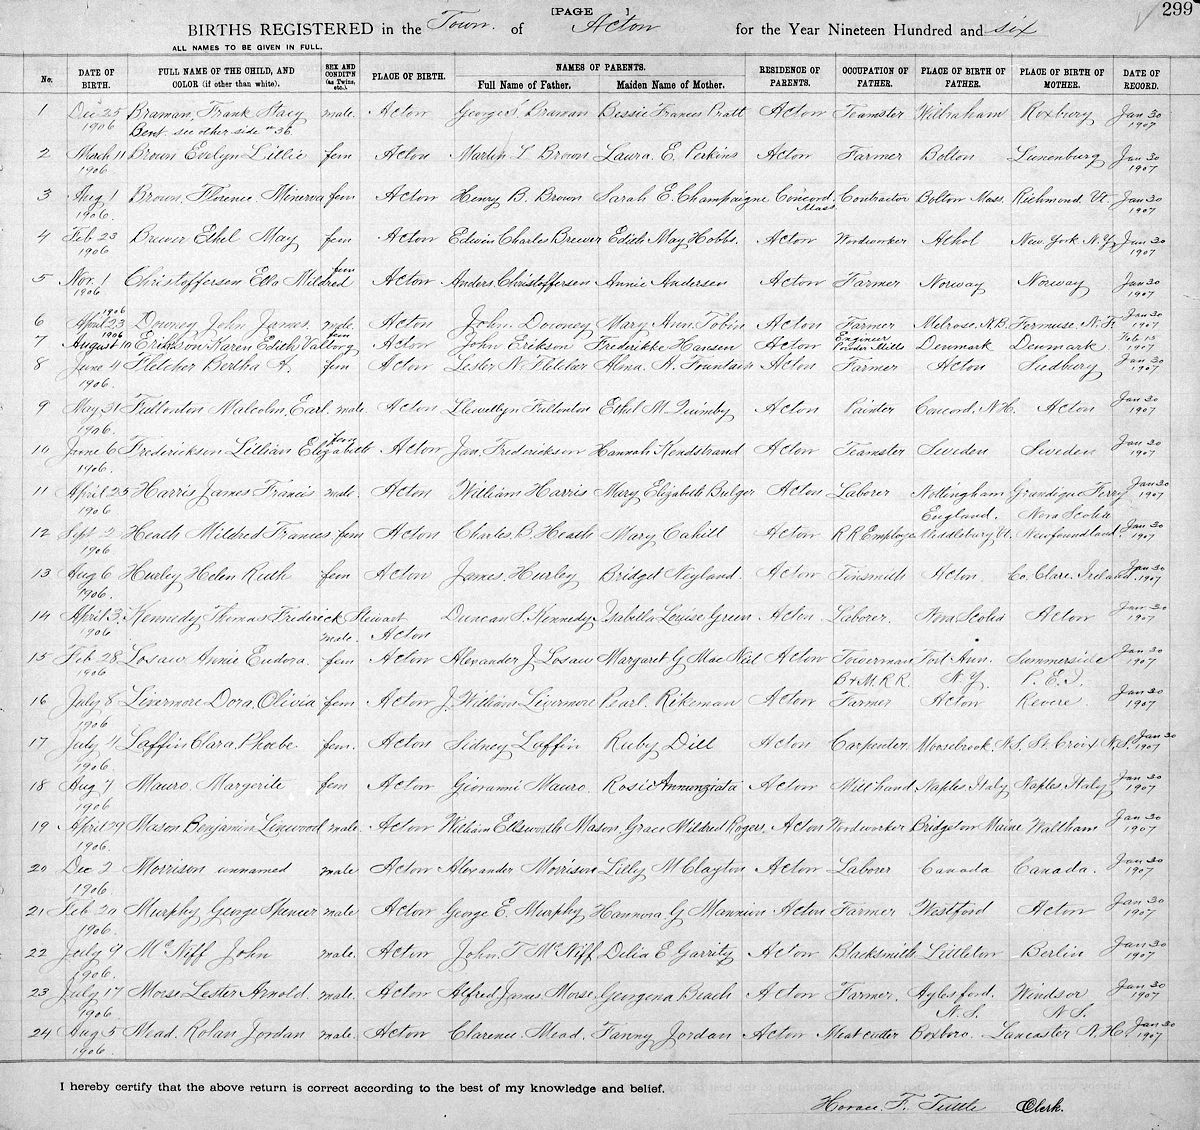 [PAGE ] 299
BIRTHS REGISTERED in the Town of Acton for the Year Nineteen Hundred and six
ALL NAMES TO BE GIVEN IN FULL.
No. DATE OF BIRTH. FULL NAME OF THE CHILD, AND COLOR (if other than white). SEX AND CONDIT'N (as Twins, etc.). PLACE OF BIRTH. NAMES OF PARENTS. Full Name of Father. Maiden Name of Mother. RESIDENCE OF PARENTS. OCCUPATION OF FATHER. PLACE OF BIRTH OF FATHER. PLACE OF BIRTH OF MOTHER. DATE OF RECORD.
1 Dec 25 1906 Braman, Frank Stacy male. Acton George S. Braman Bessie Frances Pratt Acton Teamster Wilbraham Roxbury Jan 30 1907
Bent see other side no 36
2 March 11 1906 Brown Evelyn Lillie fem Acton Martin L Brown Laura. E. Perkins Acton Farmer Bolton Lunenburg Jan 30 1907
3 Aug 1 1906. Brown, Florence Minerva fem Acton Henry B. Brown Sarah E. Champaigne Concord Mass. Contractor Bolton Mass. Richmond Vt. Jan 30 1907
4 Feb 23 1906 Brewer Ethel May fem Acton Edwin Charles Brewer Edith May Hobbs. Acton Woodworker Athol New York N.Y. Jan 30 1907
5 Nov. 1 1906 Christoffersen Ella Mildred fem Acton Anders. Christoffersen Annie Andersen Acton Farmer Norway Norway Jan 30 1907
6 April 23 1906 Downey John James. male. Acton John. Downey Mary Ann Tobin Acton Farmer Melrose N.B. Jan 30 1907
7 August 10 1906 Erikson Karen Edith Valborg fem Acton John Erikson Frederikke Hansen Acton Engineer Powder Mills Denmark Denmark Feb 15 1907
8 June 4 1906. Fletcher Bertha A. fem Acton Lester N. Fletcher Alma. H. Fountain Acton Farmer Acton Sudbury Jan 30 1907
9 May 31 1906 Fullonton Malcolm Earl. male. Acton Llewellyn Fullonton Ethel M. Quimby Acton Painter Concord, N.H. Acton Jan 30 1907
10 June 6 1906. Frederickson Lillian Elizabeth fem Acton Jan. Frederickson Hannah Kendstrand Acton Teamster Sweden Sweden Jan 30 1907
11 April 25 1906 Harris James Francis male. Acton William Harris Mary Elizabeth Bulger Acton Laborer Nottingham England. Grandique Ferry Nova Scotia Jan 30 1907
12 Sept 2 1906. Heath Mildred Frances fem Acton Charles B. Heath Mary Cahill Acton R R Employe Middlebury Vt. Newfoundland. Jan 30 1907
13 Aug 6 1906. Hurley Helen Ruth fem Acton James. Hurley Bridget Neyland. Acton Tinsmith Acton. Co. Clare. Ireland Jan 30 1907
14 April 3. 1906 Kennedy Thomas Frederick Stewart male. Acton Duncan S. Kennedy Isabella Louise Green Acton Laborer. Nova Scotia Acton Jan 30 1907
15 Feb 28 1906 Losaw Annie Eudora. fem Acton Alexander J. Losaw Margaret G MacNeil Acton Towerman B & M. R R. Fort Ann. N.Y. Summerside P. E. I. Jan 30 1907
16 July 8 1906 Livermore Dora, Olivia fem Acton J. William Livermore Pearl. Rikeman Acton Farmer Acton Revere Jan 30 1907
17 July 4 1906. Laffin Clara. Phoebe. fem. Acton Sidney Laffin Ruby Dill Acton Carpenter. Moosebrook, N.S. St. Croix N.S. Jan 30 1907
18 Aug 7 1906 Mauro. Margerite fem Acton Giovanni Mauro. Rosie Annunziata Acton Mill hand Naples Italy Naples Italy Jan 30 1907
19 April 29 1906. Mason Benjamin Linwood male. Acton William Ellsworth Mason, Grace Mildred Rogers. Acton Woodworker Bridgton Maine Waltham Jan 30 1907
20 Dec 2 1906. Morrison unnamed male Acton Alexander Morrison Lilly M Clayton Acton Laborer Canada Canada. Jan 30 1907
21 Feb 20 1906. Murphy George Spencer male Acton George E. Murphy Hannora G Mannion Acton Farmer Westford Acton Jan 30 1907
22 July 9 1906. McNiff John male. Acton John. T McNiff Delia E Garrity Acton Blacksmith Littleton Berlin Jan 30 1907
23 July 17 1906 Morse Lester Arnold. male. Acton Alfred James Morse. Georgena Beach Acton Farmer. Aylesford. N.S. Windsor N.S. Jan 30 1907
24 Aug 5 1906. Mead. Rolan Jordan male. Acton Clarence Mead. Fanny Jordan Acton Meat cutter Boxboro. Lancaster N.H. Jan 30 1907
I hereby certify that the above return is correct according to the best of my knowledge and belief.
Horace. F. Tuttle Clerk.